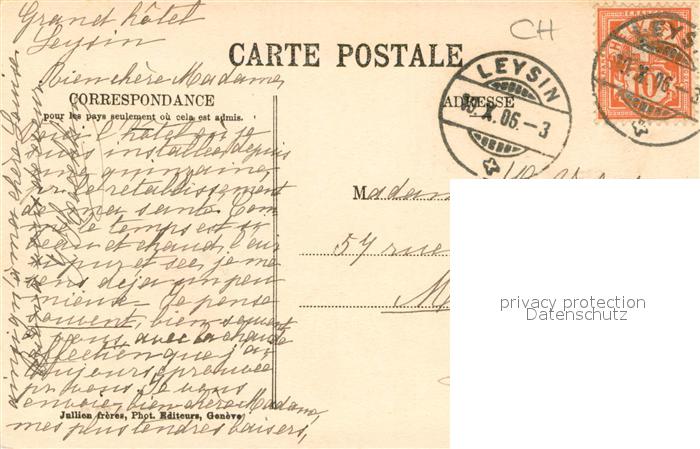 Grand hôtel
Leysin
CARTE POSTALE
CH
LEYSIN
X.06.-3
LEYS
X.06.-
10
bien chère Madame,
CORRESPONDANCE
ADRESSE
pour les pays seulement où cela est admis.
l'hôtel où je
suis installée, depuis
une quinzaine,
le rétablissement
de ma santé. Com
me le temps est si
beau et chaud, l'air
si pur et sec, je me
sens déjà un peu
mieux. Je pense
souvent, bien souvent
à vous, avec la chaude
affection que j'ai
toujours éprouvée
pr vous. Je vous
envoie, bien chère Madame,
mes plus tendres baisers,
ainsi qu'à ma chère Louise
Madam
57 rue
M
Jullien frères, Phot. Editeurs, Genève
privacy protection
Datenschutz